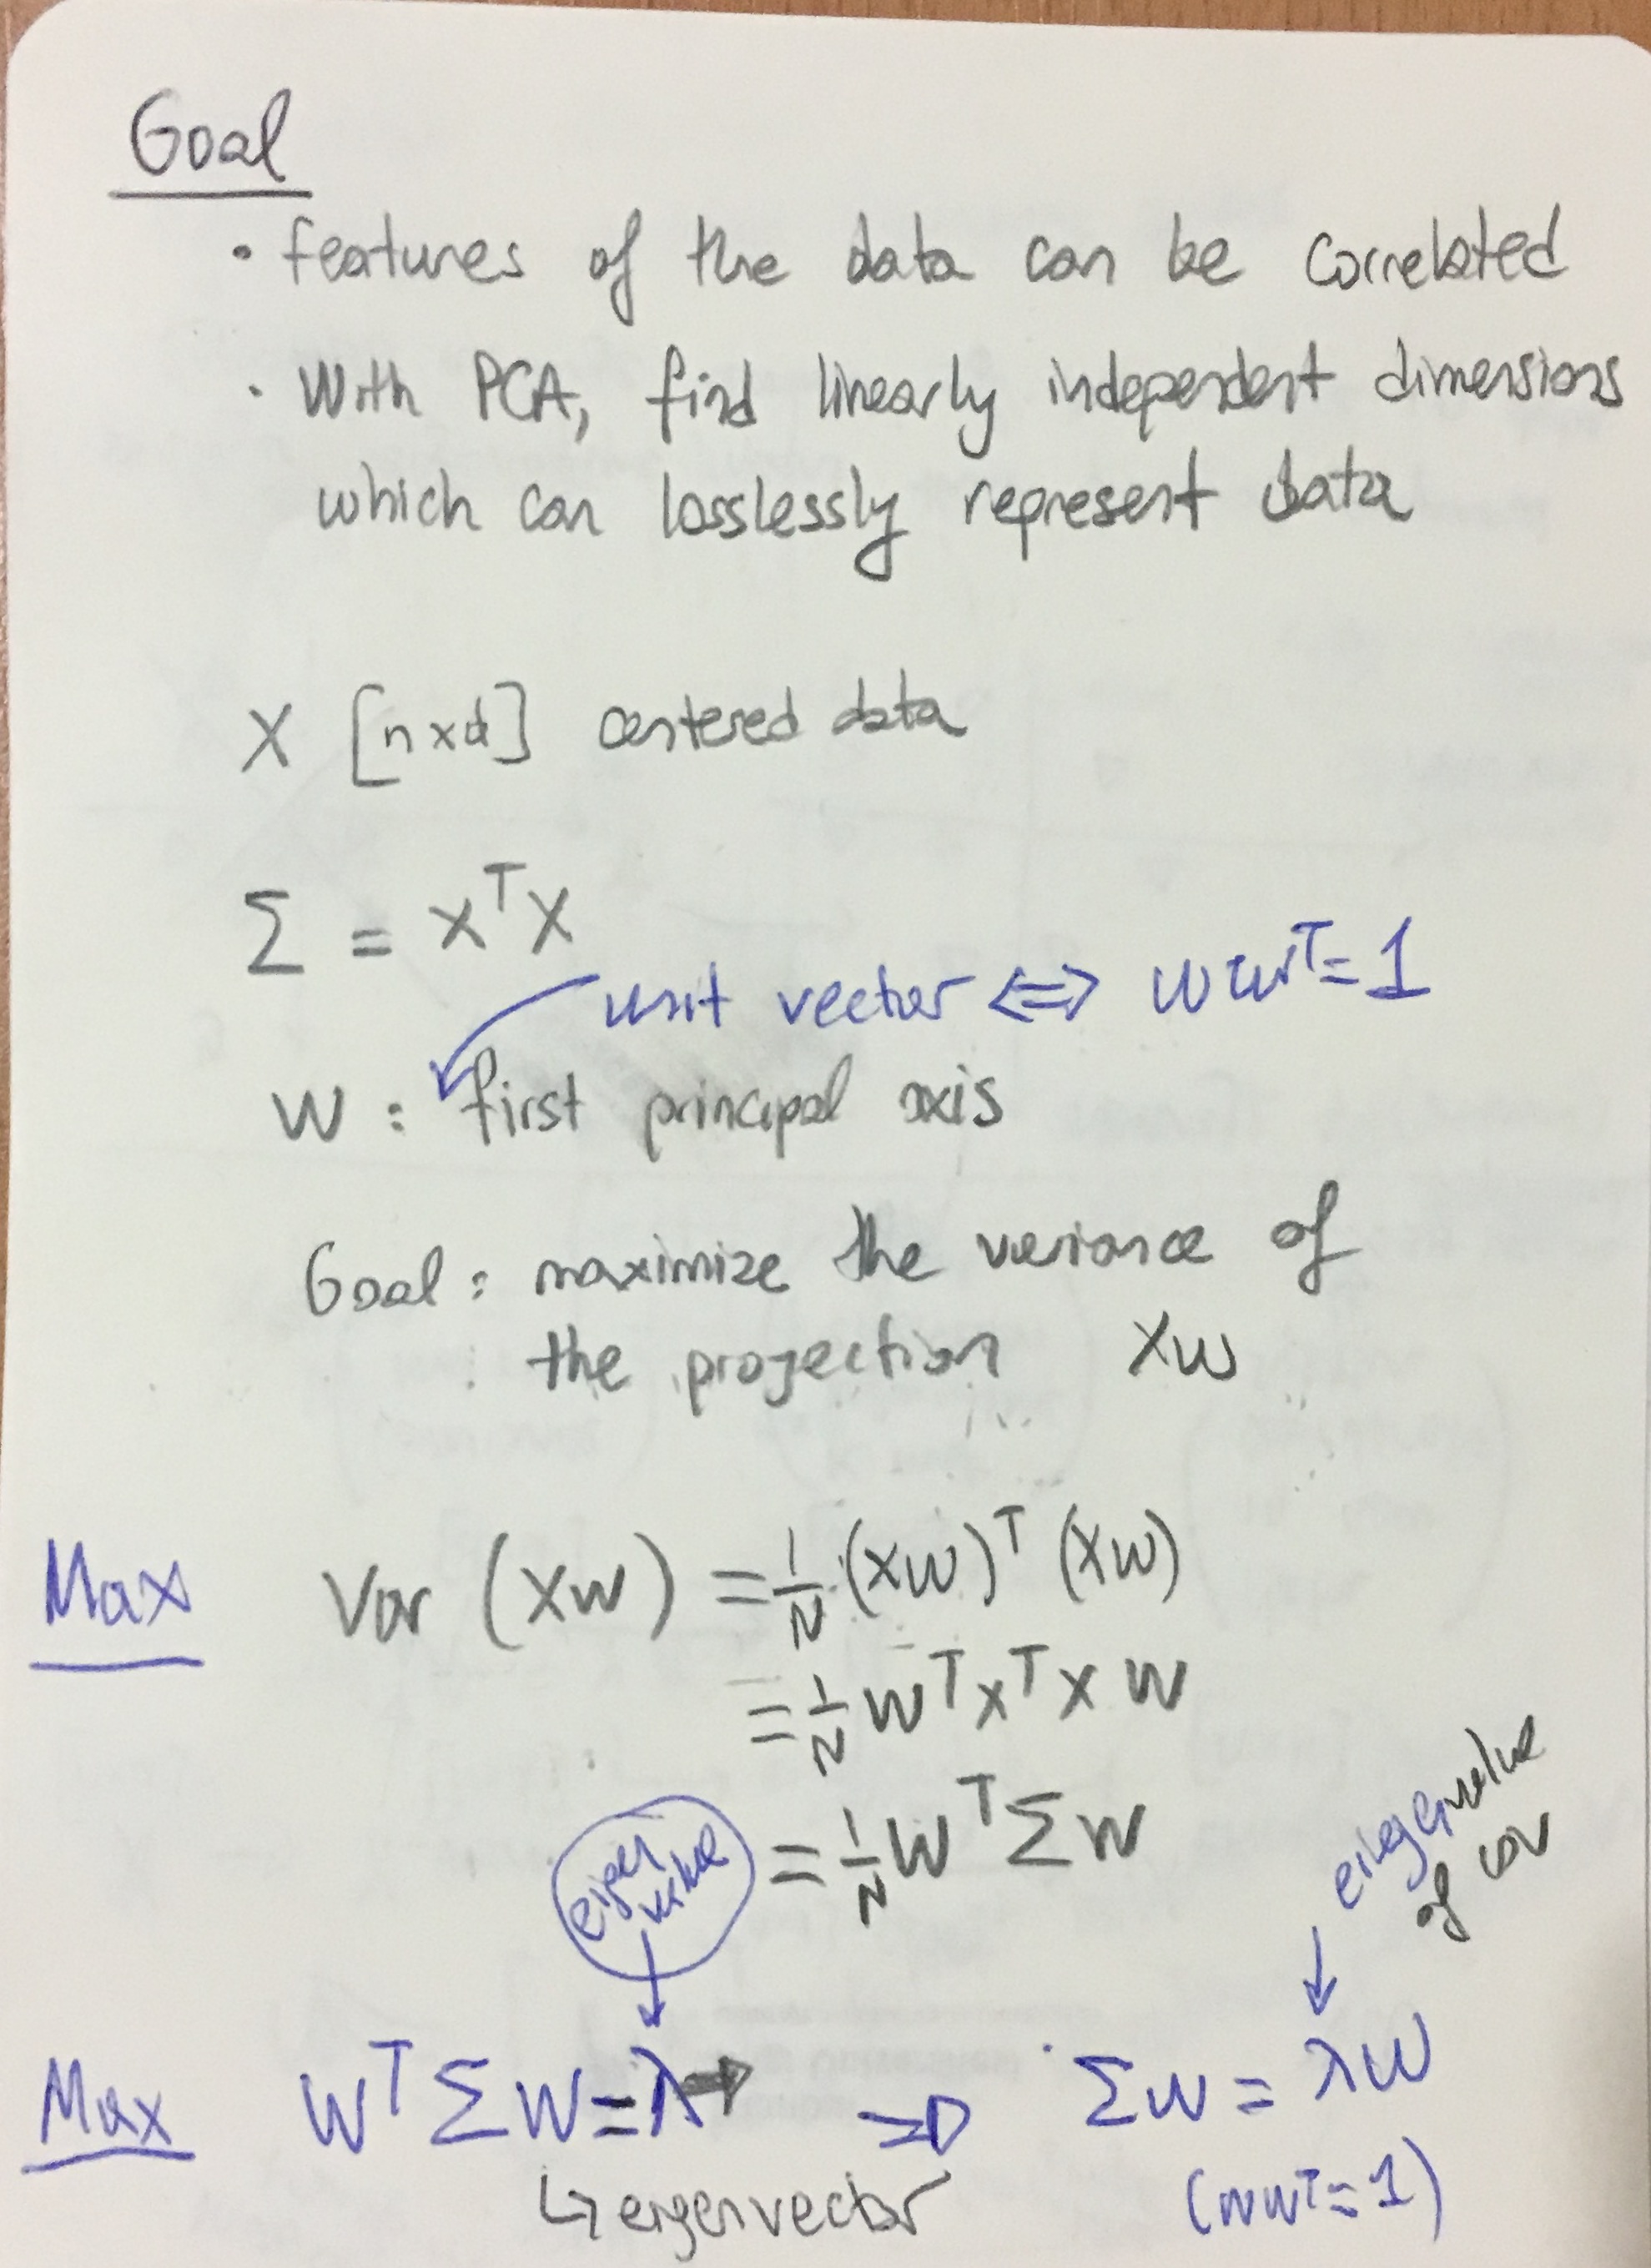 Goal
• features of the data can be correlated
• With PCA, find linearly independent dimensions
which can losslessly represent data
X [n x d] centered data
Σ = XᵀX
unit vector ⟺ wwᵀ=1
W : first principal axis
Goal : maximize the variance of
the projection XW
Max Var (XW) = 1/N (XW)ᵀ (XW)
= 1/N WᵀXᵀX W
= 1/N Wᵀ Σ W
eigen
value
eigenvalue
of cov
Max Wᵀ Σ W = λ ⇒ ΣW = λW
↳ eigenvector (wwᵀ=1)